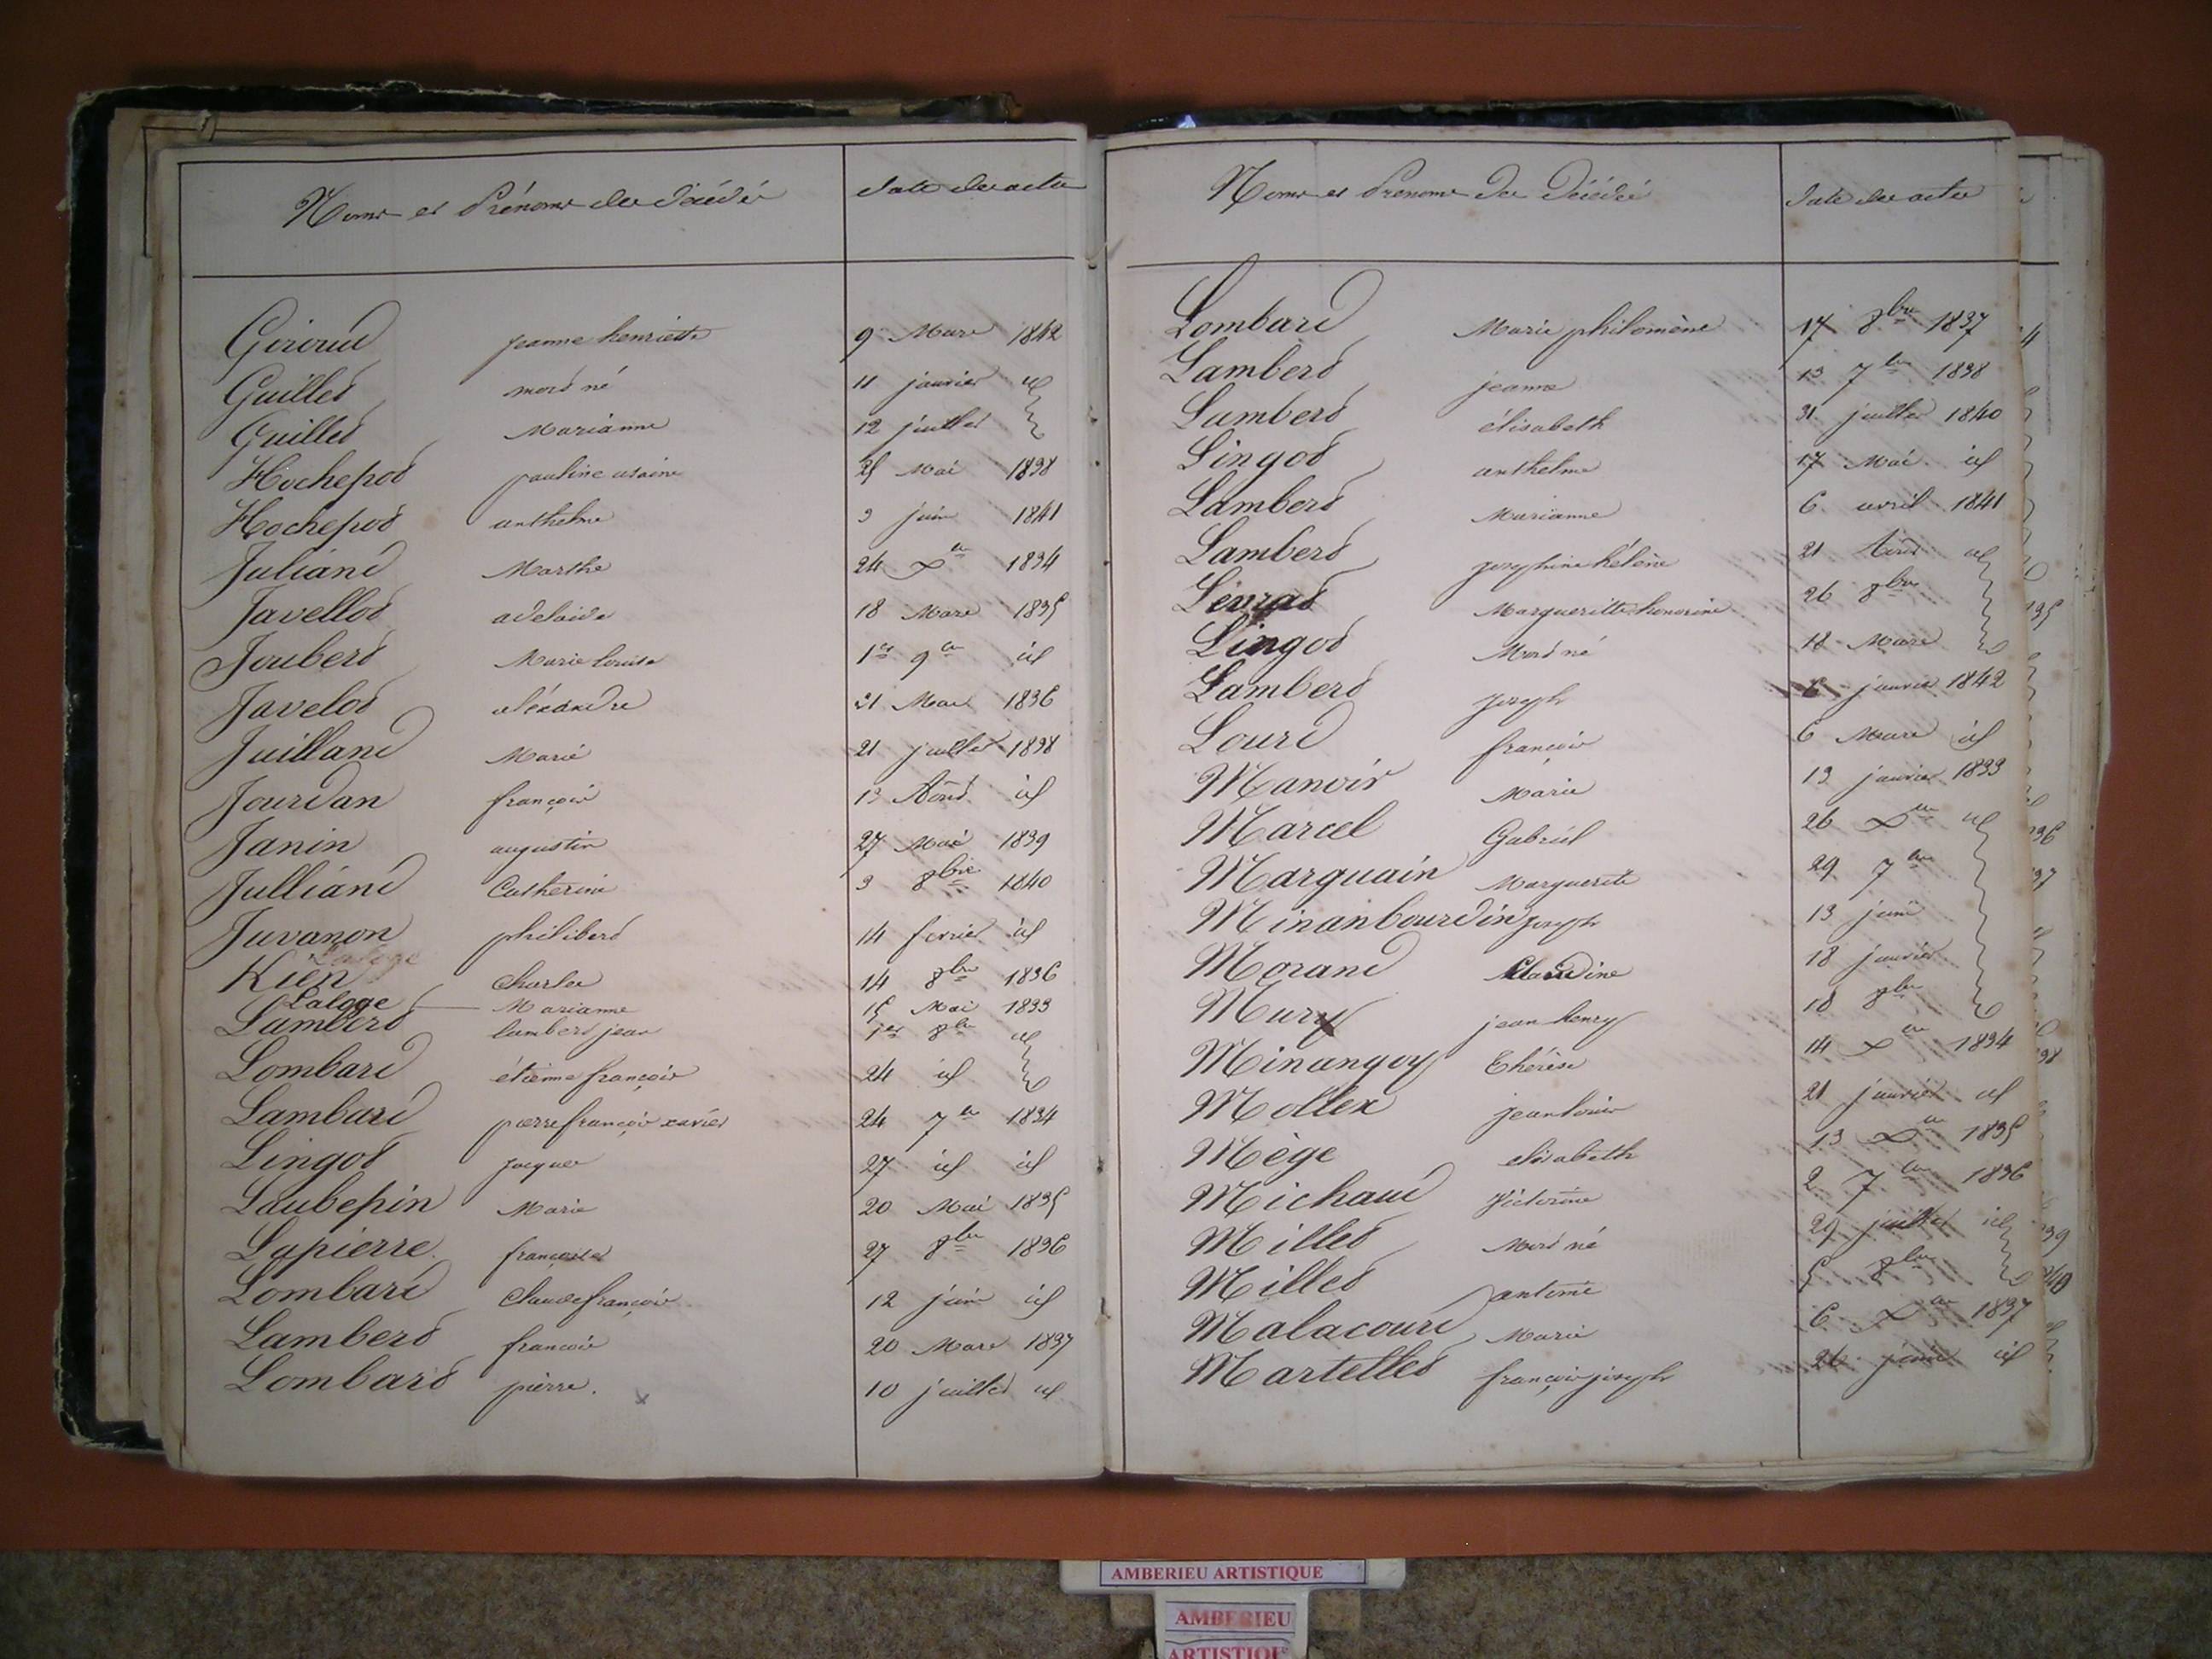 Noms et Prénoms des Décédés date des actes
Giroud jeanne henriette 9 Mars 1842
Guillet mort né 11 janvier id
Guillet Marianne 12 juillet
Hochepot pauline 25 Mai 1838
Hochepot anthelme 3 juin 1841
Juliand Marthe 24 Xbre 1834
Javellot adelaide 18 Mars 1835
Joubert Marie louise 1er 9bre id
Javelot aléxandre 21 Mars 1836
Juilland Marie 21 juillet 1838
Jourdan françois 13 Aout id
Janin augustin 27 Mai 1839
Julliand Catherine 3 8bre 1840
Juvanon philibert 14 fevrier id
Laloge
Kien Charles 14 8bre 1836
Laloge Marianne 15 Mai 1833
Lambert lambert jean 1er 8bre id
Lombard étienne françois 24 id
Lambard pierre françois xavier 24 7bre 1834
Lingot jacques 27 id id
Laubepin Marie 20 Mai 1835
Lapierre françoise 27 8bre 1836
Lombard Claude françois 12 juin id
Lambert francois 20 Mars 1837
Lombard pierre. 10 juillet id
Noms et Prénoms des Décédés date des actes
Lombard Marie philomène 17 8bre 1837
Lambert jeanne 13 7bre 1838
Lambert élisabeth 31 juillet 1840
Lingot anthelme 17 Mai id
Lambert Marianne 6 avril 1841
Lambert josephine hélène 21 Aout id
Levrat Margueritte honorine 26 8bre
Lingot Mort né 18 Mars
Lambert joseph 6 janvier 1842
Lourd françois 6 Mars id
Manoir Marie 13 janvier 1833
Marcel Gabriel 26 Xbre id
Marguain Marguerite 29 7bre
Minanbourdin joseph 13 juin
Morand Claudine 18 janvier
Mury jean henry 18 8bre
Minangoy Thérèse 14 Xbre 1834
Mollex jean louis 21 janvier id
Mège elisabeth 13 Xbre 1835
Michaud Victorine 2 7bre 1836
Millet Mort né 29 juillet id
Millet antoine 5 8bre
Malacourt Marie 6 Xbre 1837
Martellet françois joseph 26 juin id
AMBERIEU ARTISTIQUE
AMBERIEU
ARTISTIQUE